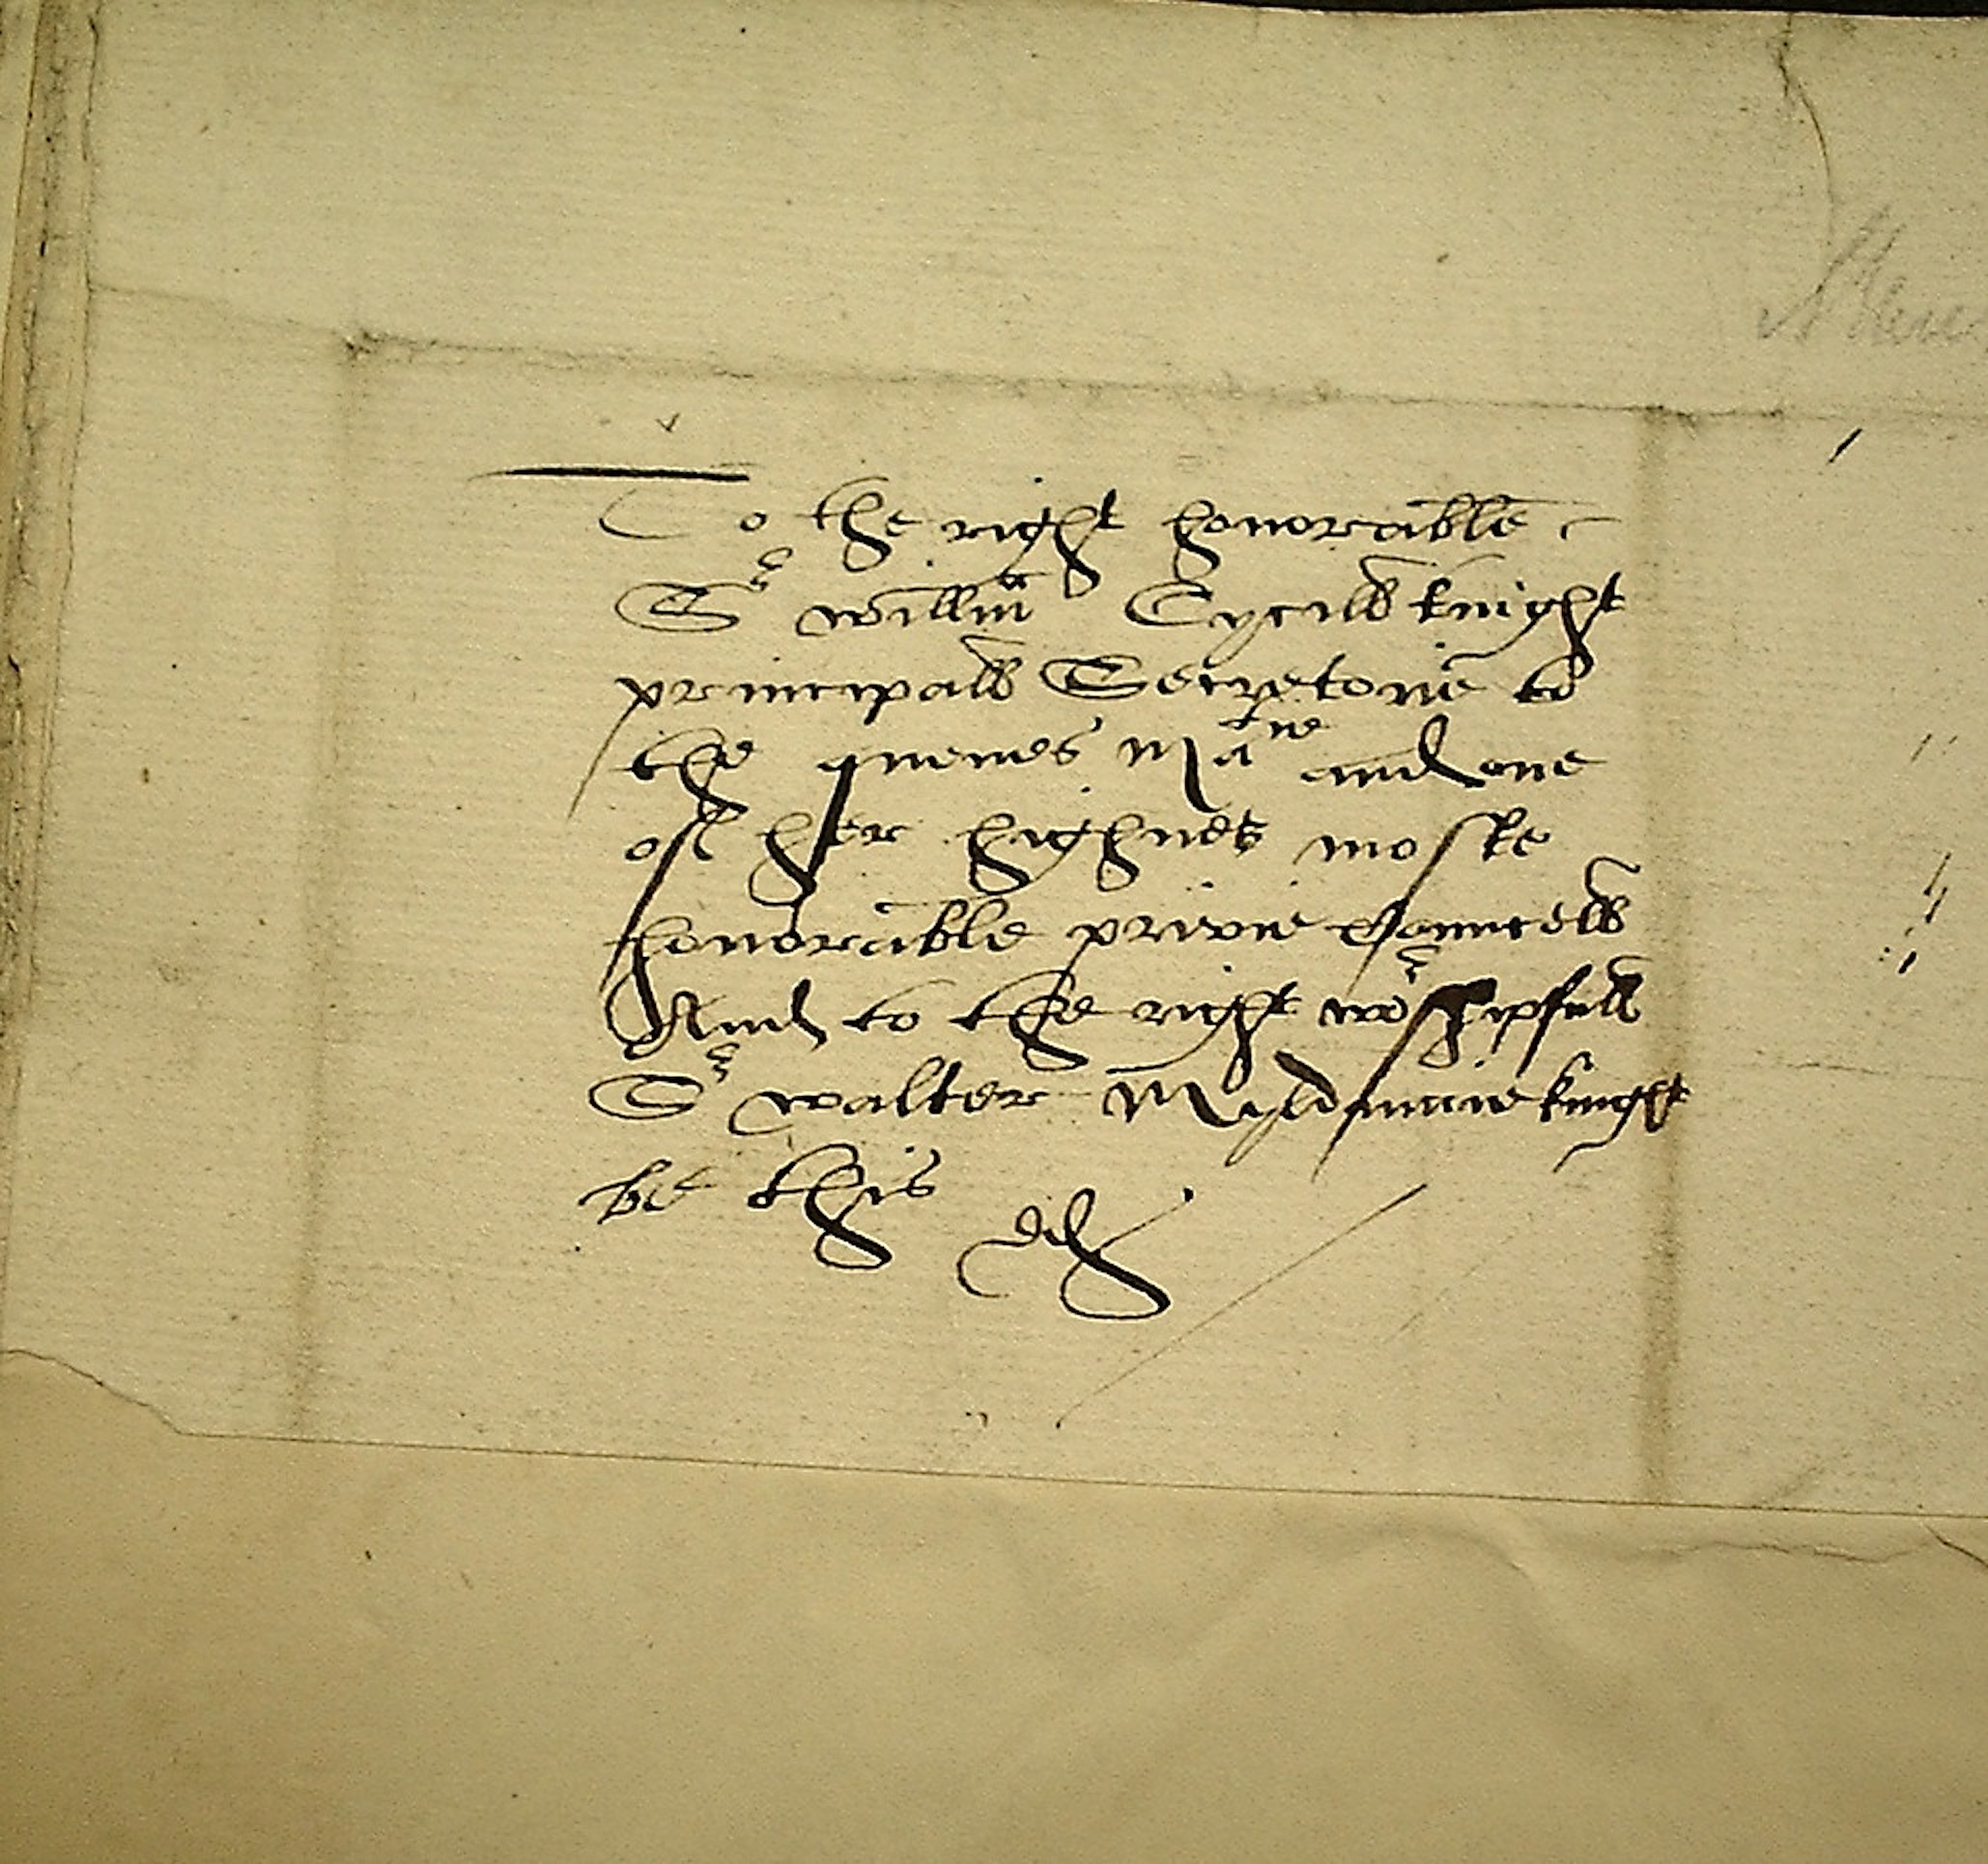 To the right honorable
Sr willm Cycill knight
principall Secretorie to
the quenes Matie and one
of her highnes moste
honorable privie Councell
And to the right worshipfull
Sr walter Myldmaie knight
be this dd